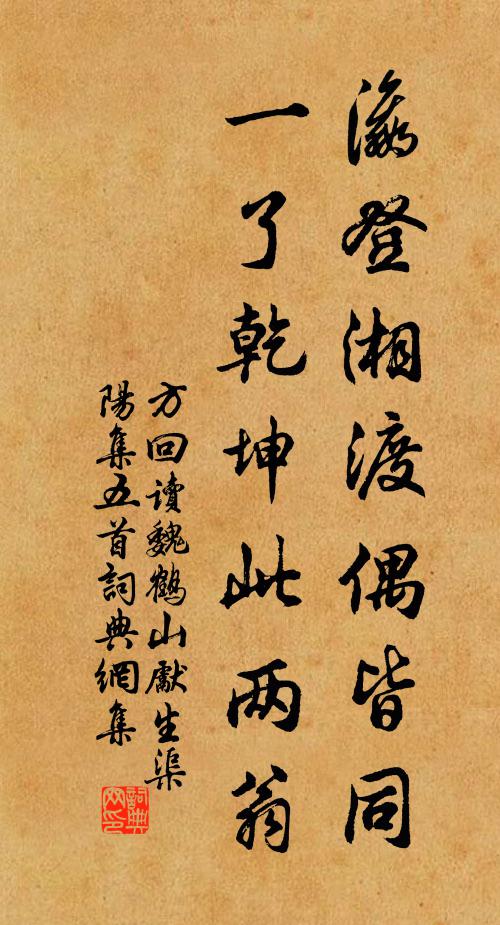 瀛登湘渡偶皆同
一了乾坤此两翁
方回讀魏鶴山獻生渠
陽集五首詞典網集
詞典網印